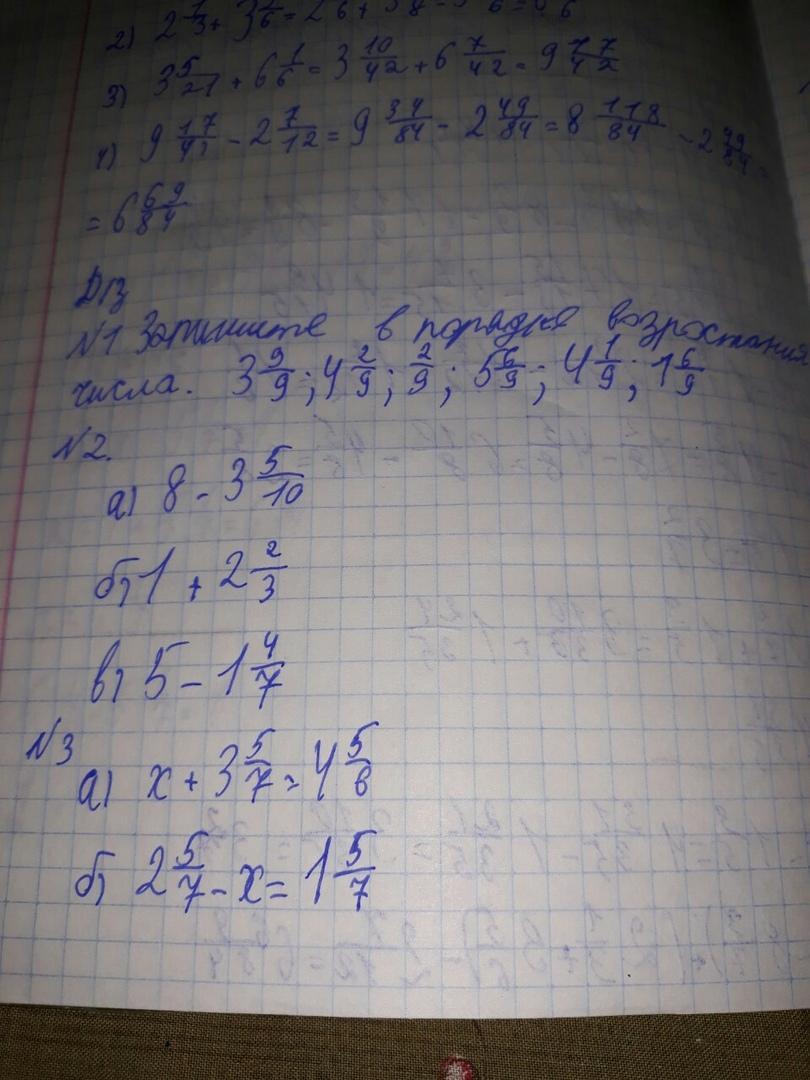 2) 2 1/3 + 3 1/6 = 2
3) 3 5/21 + 6 1/6 = 3 10/42 + 6 7/42 = 9 17/42
4) 9 17/42 - 2 7/12 = 9 34/84 - 2 49/84 = 8 118/84 - 2 49/84 =
= 6 69/84
Д/з
№1 Запишите в порядке возростания
числа. 3 9/9; 4 2/9; 2/9; 5 6/9; 4 1/9; 1 6/9
№2.
а) 8 - 3 5/10
б) 1 + 2 2/3
в) 5 - 1 4/7
№3
а) x + 3 5/7 = 4 5/6
б) 2 5/7 - x = 1 5/7